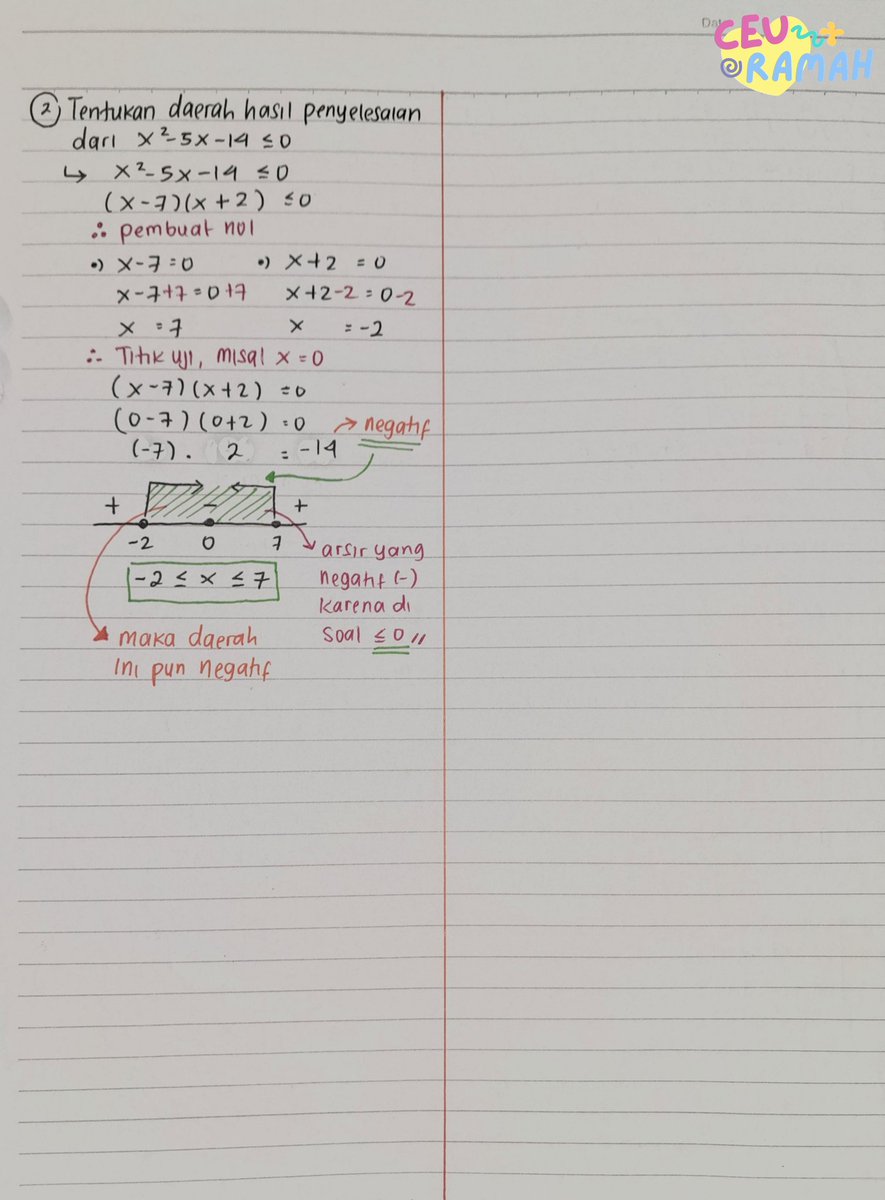 Dat
CEU
@RAMAH
2) Tentukan daerah hasil penyelesaian
dari x²-5x-14 ≤0
↳ x²-5x-14 ≤0
(x-7)(x+2) ≤0
∴ pembuat nol
•) x-7=0 •) x+2 =0
x-7+7=0+7 x+2-2=0-2
x =7 x =-2
∴ Titik uji, misal x=0
(x-7)(x+2) =0
(0-7)(0+2) =0 → negatif
(-7). 2 = -14
+ - +
-2 0 7
arsir yang
-2 ≤ x ≤ 7 negatif (-)
karena di
soal ≤0 //
maka daerah
ini pun negatif